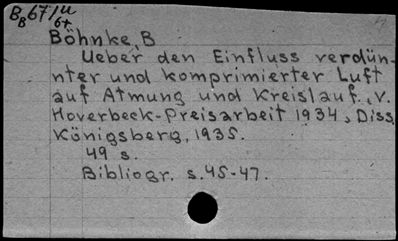 B_B 67/u
6+
Böhnke, B
Ueber den Einfluss verdün-
nter und komprimierter Luft
auf Atmung und Kreislauf., v.
Hoverbeck-Preisarbeit 1934, Diss
Königsberg, 1935.
49 s.
Bibliogr. s.45-47.